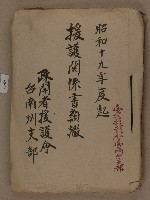 昭和十九年度起
援護関係書類綴
疎開者援護會
台南州支部